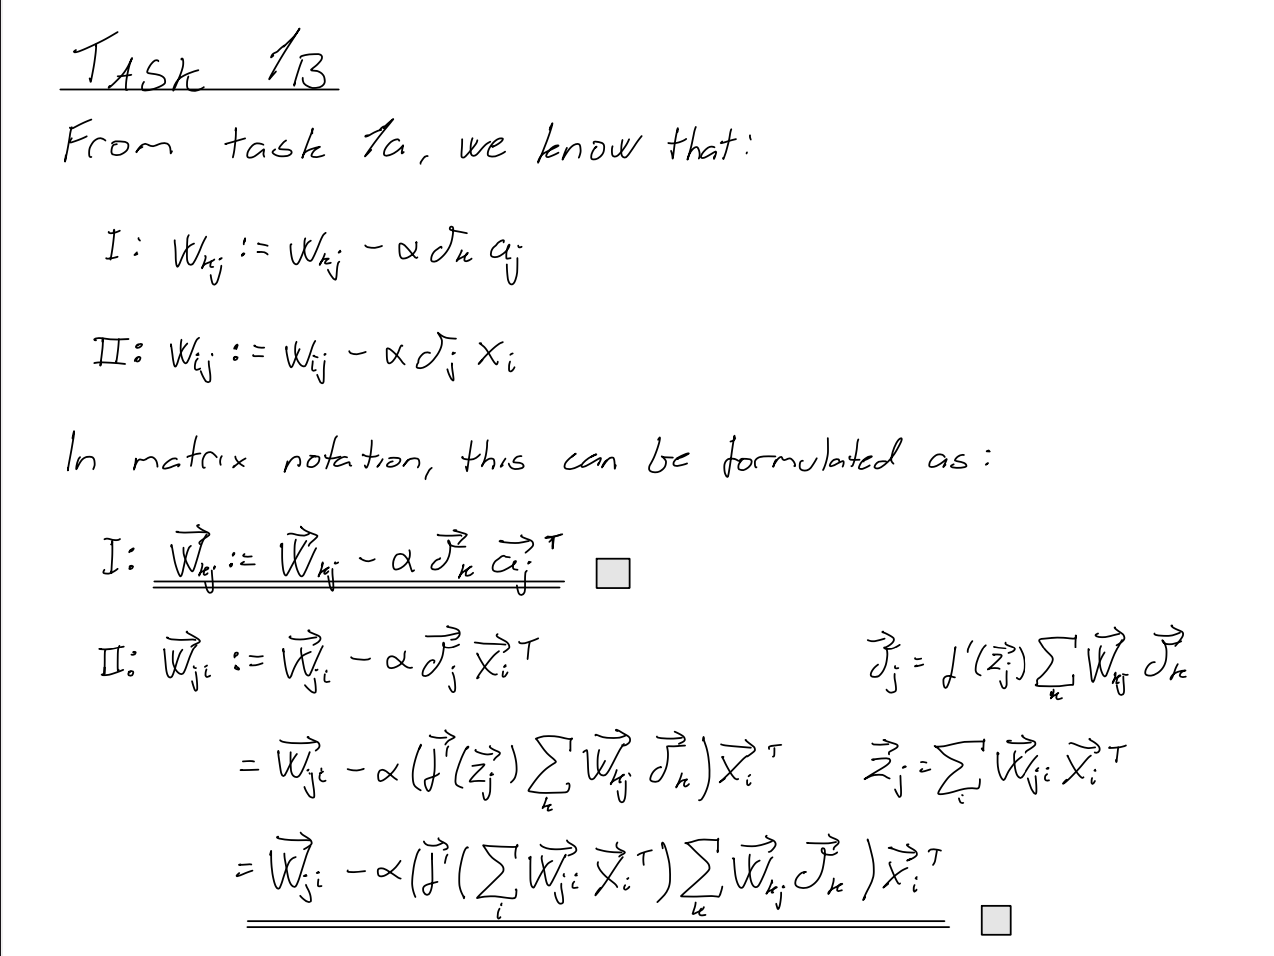 TASK 1B
From task 1a, we know that:
I: w_{kj} := w_{kj} - α δ_k a_j
II: w_{ij} := w_{ij} - α δ_j x_i
In matrix notation, this can be formulated as:
I: \vec{W}_{kj} := \vec{W}_{kj} - α \vec{δ}_k \vec{a}_j^T
II: \vec{W}_{ji} := \vec{W}_{ji} - α \vec{δ}_j \vec{x}_i^T
\vec{δ}_j = f'(\vec{z}_j) \sum_k \vec{W}_{kj} \vec{δ}_k
= \vec{W}_{ji} - α(\vec{f}'(\vec{z}_j) \sum_k \vec{W}_{kj} \vec{δ}_k) \vec{x}_i^T
\vec{z}_j = \sum_i \vec{W}_{ji} \vec{x}_i^T
= \vec{W}_{ji} - α(\vec{f}'(\sum_i \vec{W}_{ji} \vec{x}_i^T) \sum_k \vec{W}_{kj} \vec{δ}_k) \vec{x}_i^T